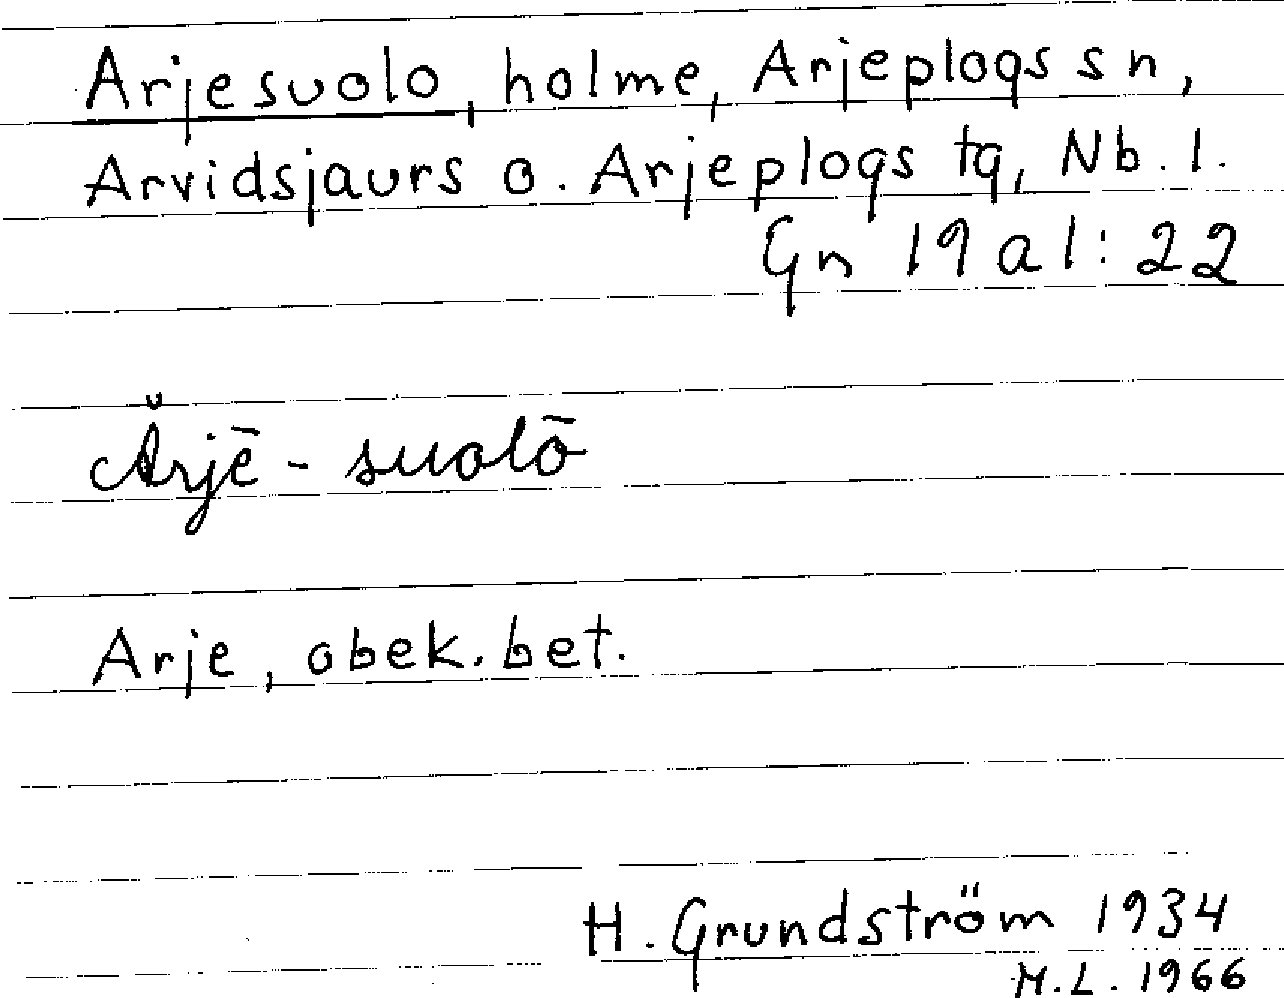 Arjesuolo, holme, Arjeplogs sn,
Arvidsjaurs o. Arjeplogs tg, Nb. l.
Gn 19 a 1: 22
Ărjē - suolō
Arje, obek. bet.
H. Grundström 1934
M.L. 1966